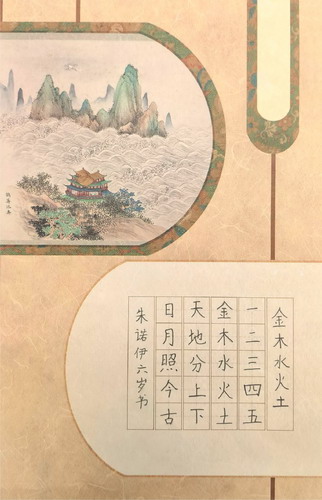 金木水火土
一二三四五
金木水火土
天地分上下
日月照今古
朱诺伊六岁书